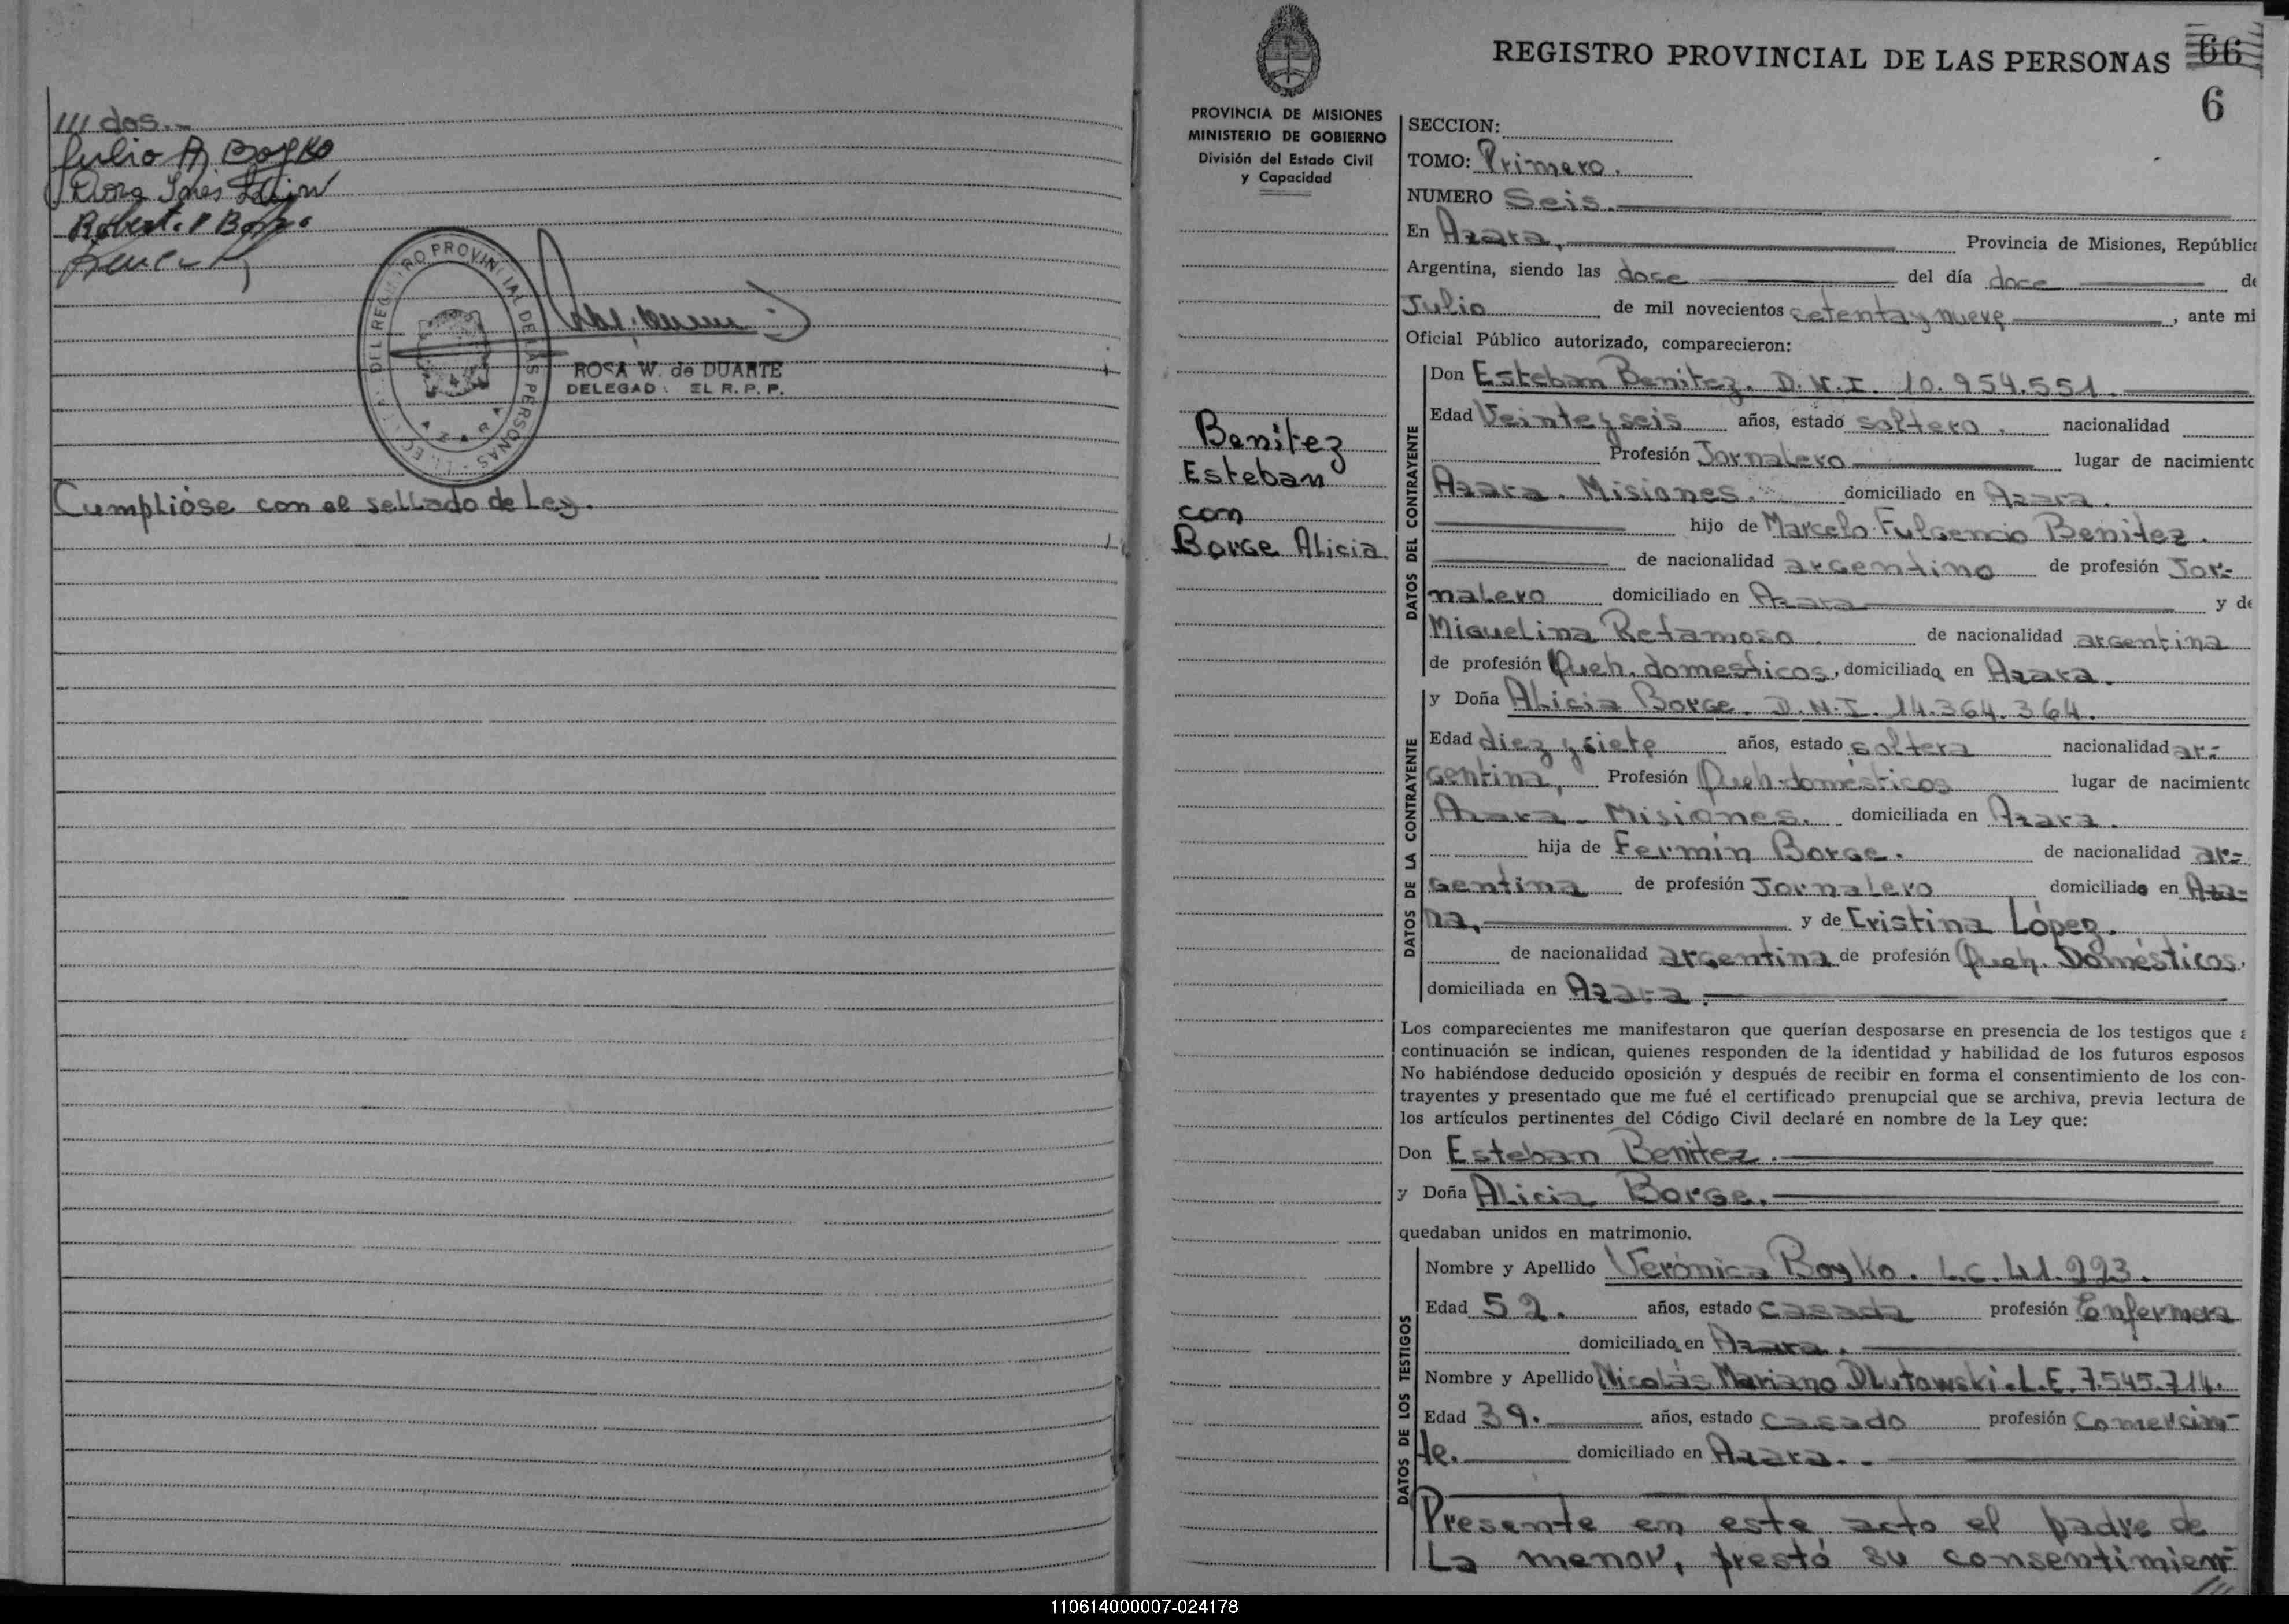 /// dos.-
Julio A Boyko
Dora Inés
Roberto P
DEL REGISTRO PROVINCIAL DE LAS PERSONAS
AZARA
ROSA W. de DUARTE
DELEGAD EL R. P. P.
Cumplióse con el sellado de Ley.
REGISTRO PROVINCIAL DE LAS PERSONAS
66
6
PROVINCIA DE MISIONES
MINISTERIO DE GOBIERNO
División del Estado Civil
y Capacidad
Benitez
Esteban
con
Borge Alicia
SECCION:
TOMO: Primero.
NUMERO Seis.
En Azara, Provincia de Misiones, República
Argentina, siendo las doce del día doce de
Julio de mil novecientos setenta y nueve, ante mi
Oficial Público autorizado, comparecieron:
DATOS DEL CONTRAYENTE
Don Esteban Benitez. D.N.I. 10.954.551.
Edad Veinte y seis años, estado soltero. nacionalidad
Profesión Jornalero lugar de nacimiento
Azara. Misiones. domiciliado en Azara.
hijo de Marcelo Fulgencio Benitez.
de nacionalidad argentino de profesión Jor=
nalero domiciliado en Azara y de
Miguelina Retamoso. de nacionalidad argentina
de profesión Queh. domesticos, domiciliada en Azara.
DATOS DE LA CONTRAYENTE
y Doña Alicia Borge. D.N.I. 14.364.364.
Edad diez y siete años, estado soltera nacionalidad ar=
gentina, Profesión Queh. domésticos lugar de nacimiento
Azara - Misiones. domiciliada en Azara.
hija de Fermín Borge. de nacionalidad ar=
gentina de profesión Jornalero domiciliado en Aza=
ra, y de Cristina López.
de nacionalidad argentina de profesión Queh. Domésticos.
domiciliada en Azara.
Los comparecientes me manifestaron que querían desposarse en presencia de los testigos que a
continuación se indican, quienes responden de la identidad y habilidad de los futuros esposos
No habiéndose deducido oposición y después de recibir en forma el consentimiento de los con-
trayentes y presentado que me fué el certificado prenupcial que se archiva, previa lectura de
los artículos pertinentes del Código Civil declaré en nombre de la Ley que:
Don Esteban Benitez.
y Doña Alicia Borge.
quedaban unidos en matrimonio.
DATOS DE LOS TESTIGOS
Nombre y Apellido Verónica Boyko. L.C. 41.223.
Edad 52. años, estado casada profesión Enfermera
domiciliada en Azara.
Nombre y Apellido Nicolás Mariano Dlutowski. L.E. 7.545.714.
Edad 39. años, estado casado profesión Comercian=
te. domiciliado en Azara.
Presente en este acto el padre de
La menor, prestó su consentimien=
///
110614000007-024178